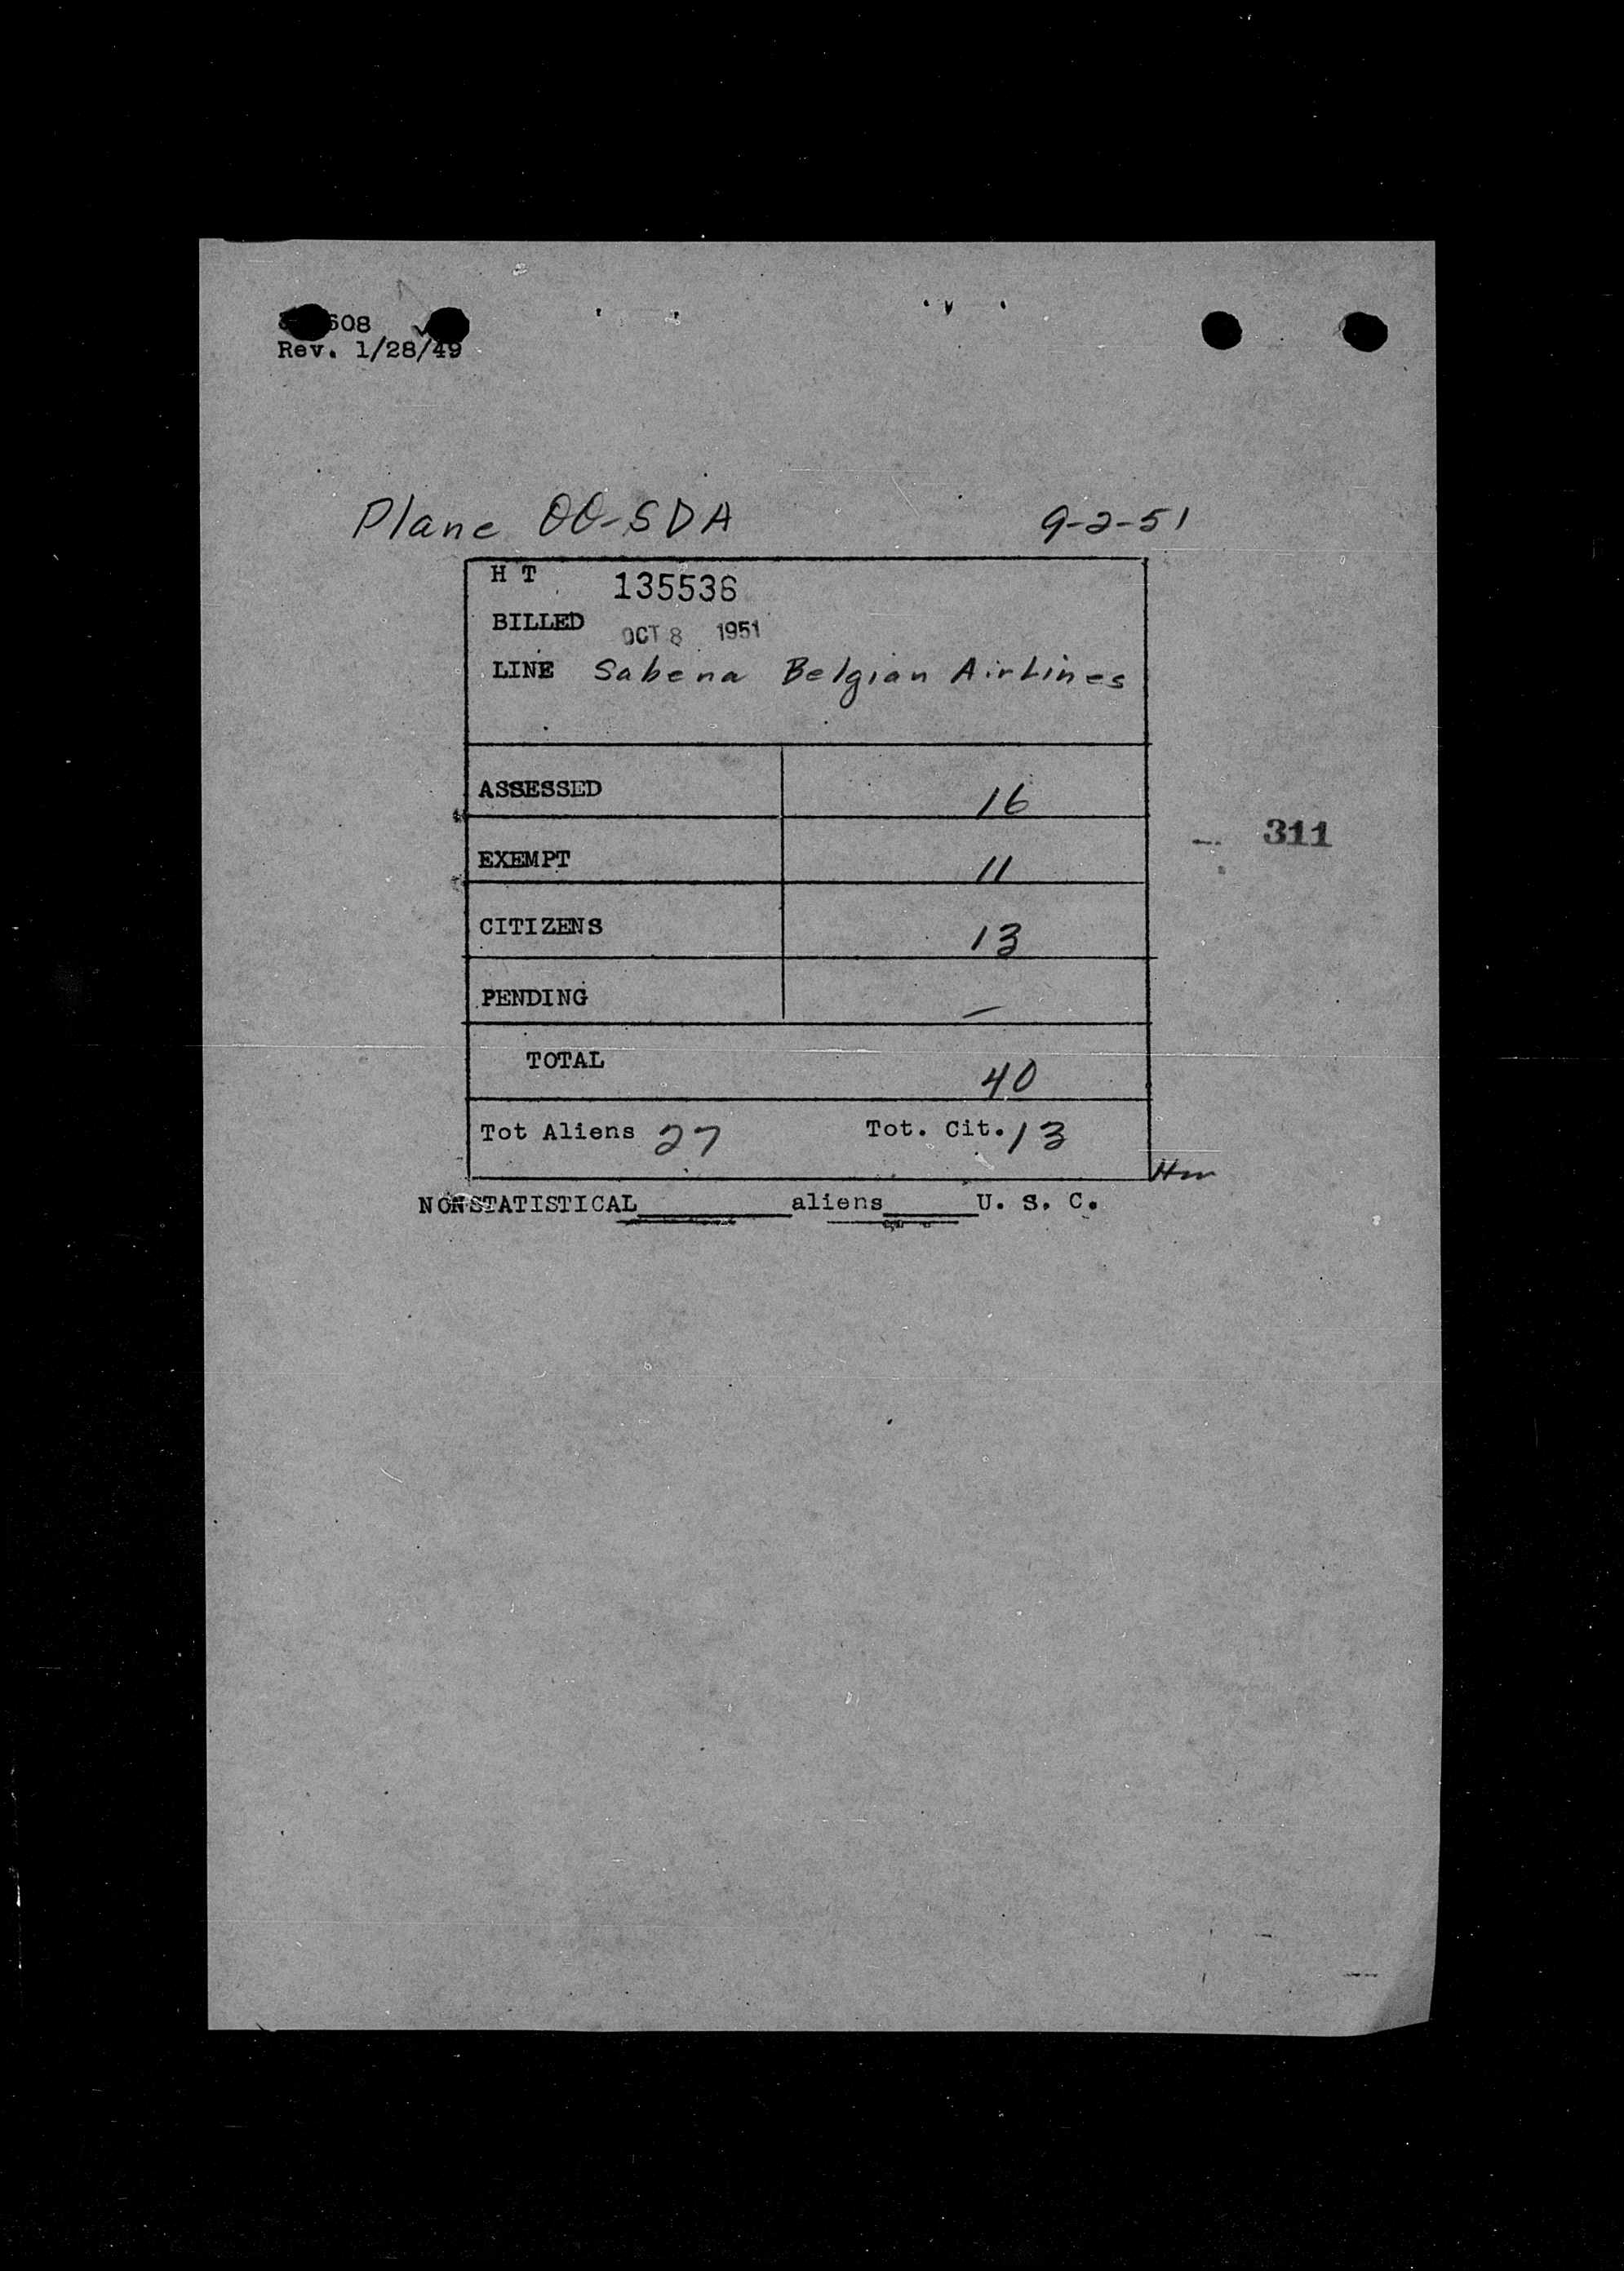 608
Rev. 1/28/49
Plane OO-SDA 9-2-51
H T 135536
BILLED OCT 8 1951
LINE Sabena Belgian AirLines
ASSESSED 16
311
EXEMPT 11
CITIZENS 13
PENDING —
TOTAL 40
Tot Aliens 27 Tot. Cit. 13
NONSTATISTICAL________aliens_____U. S. C.